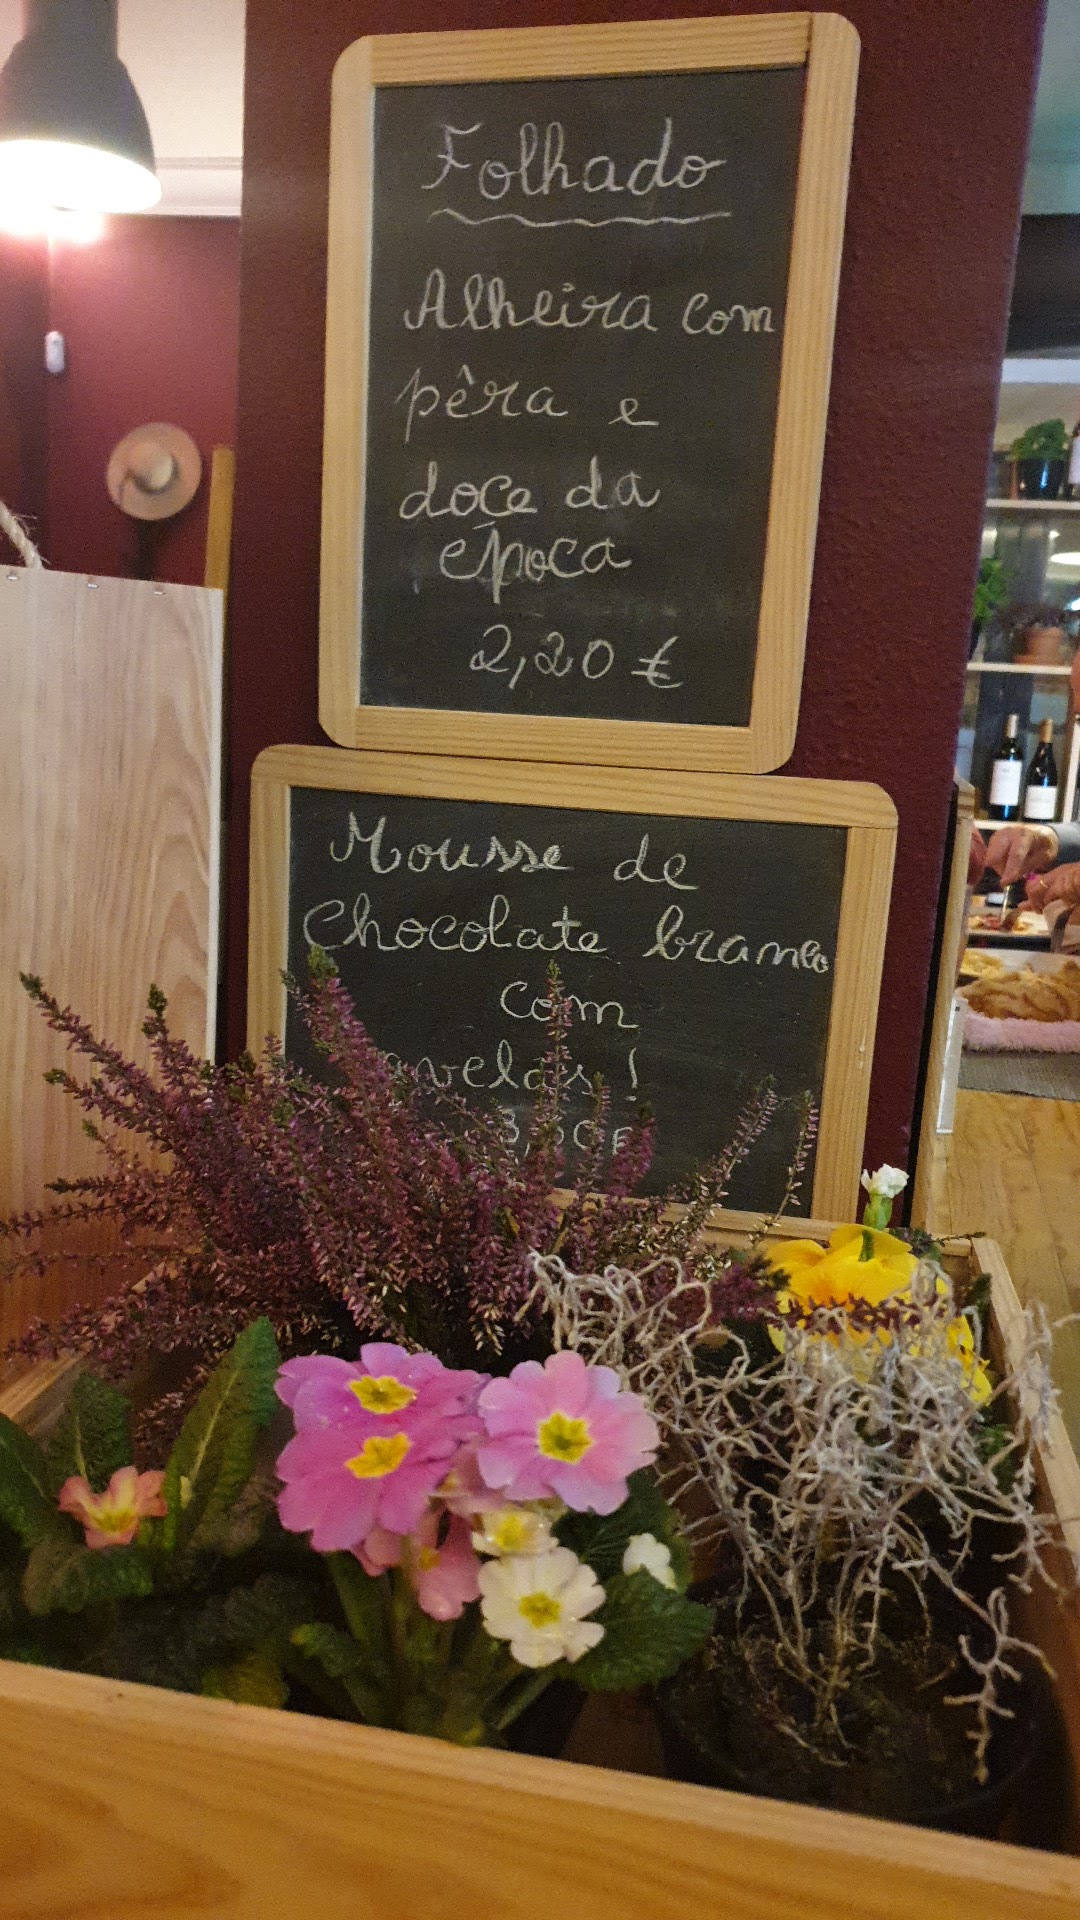 Folhado
Alheira com
pêra e
doçe da
época
2,20 €
Mousse de
Chocolate branco
com
avelãs!